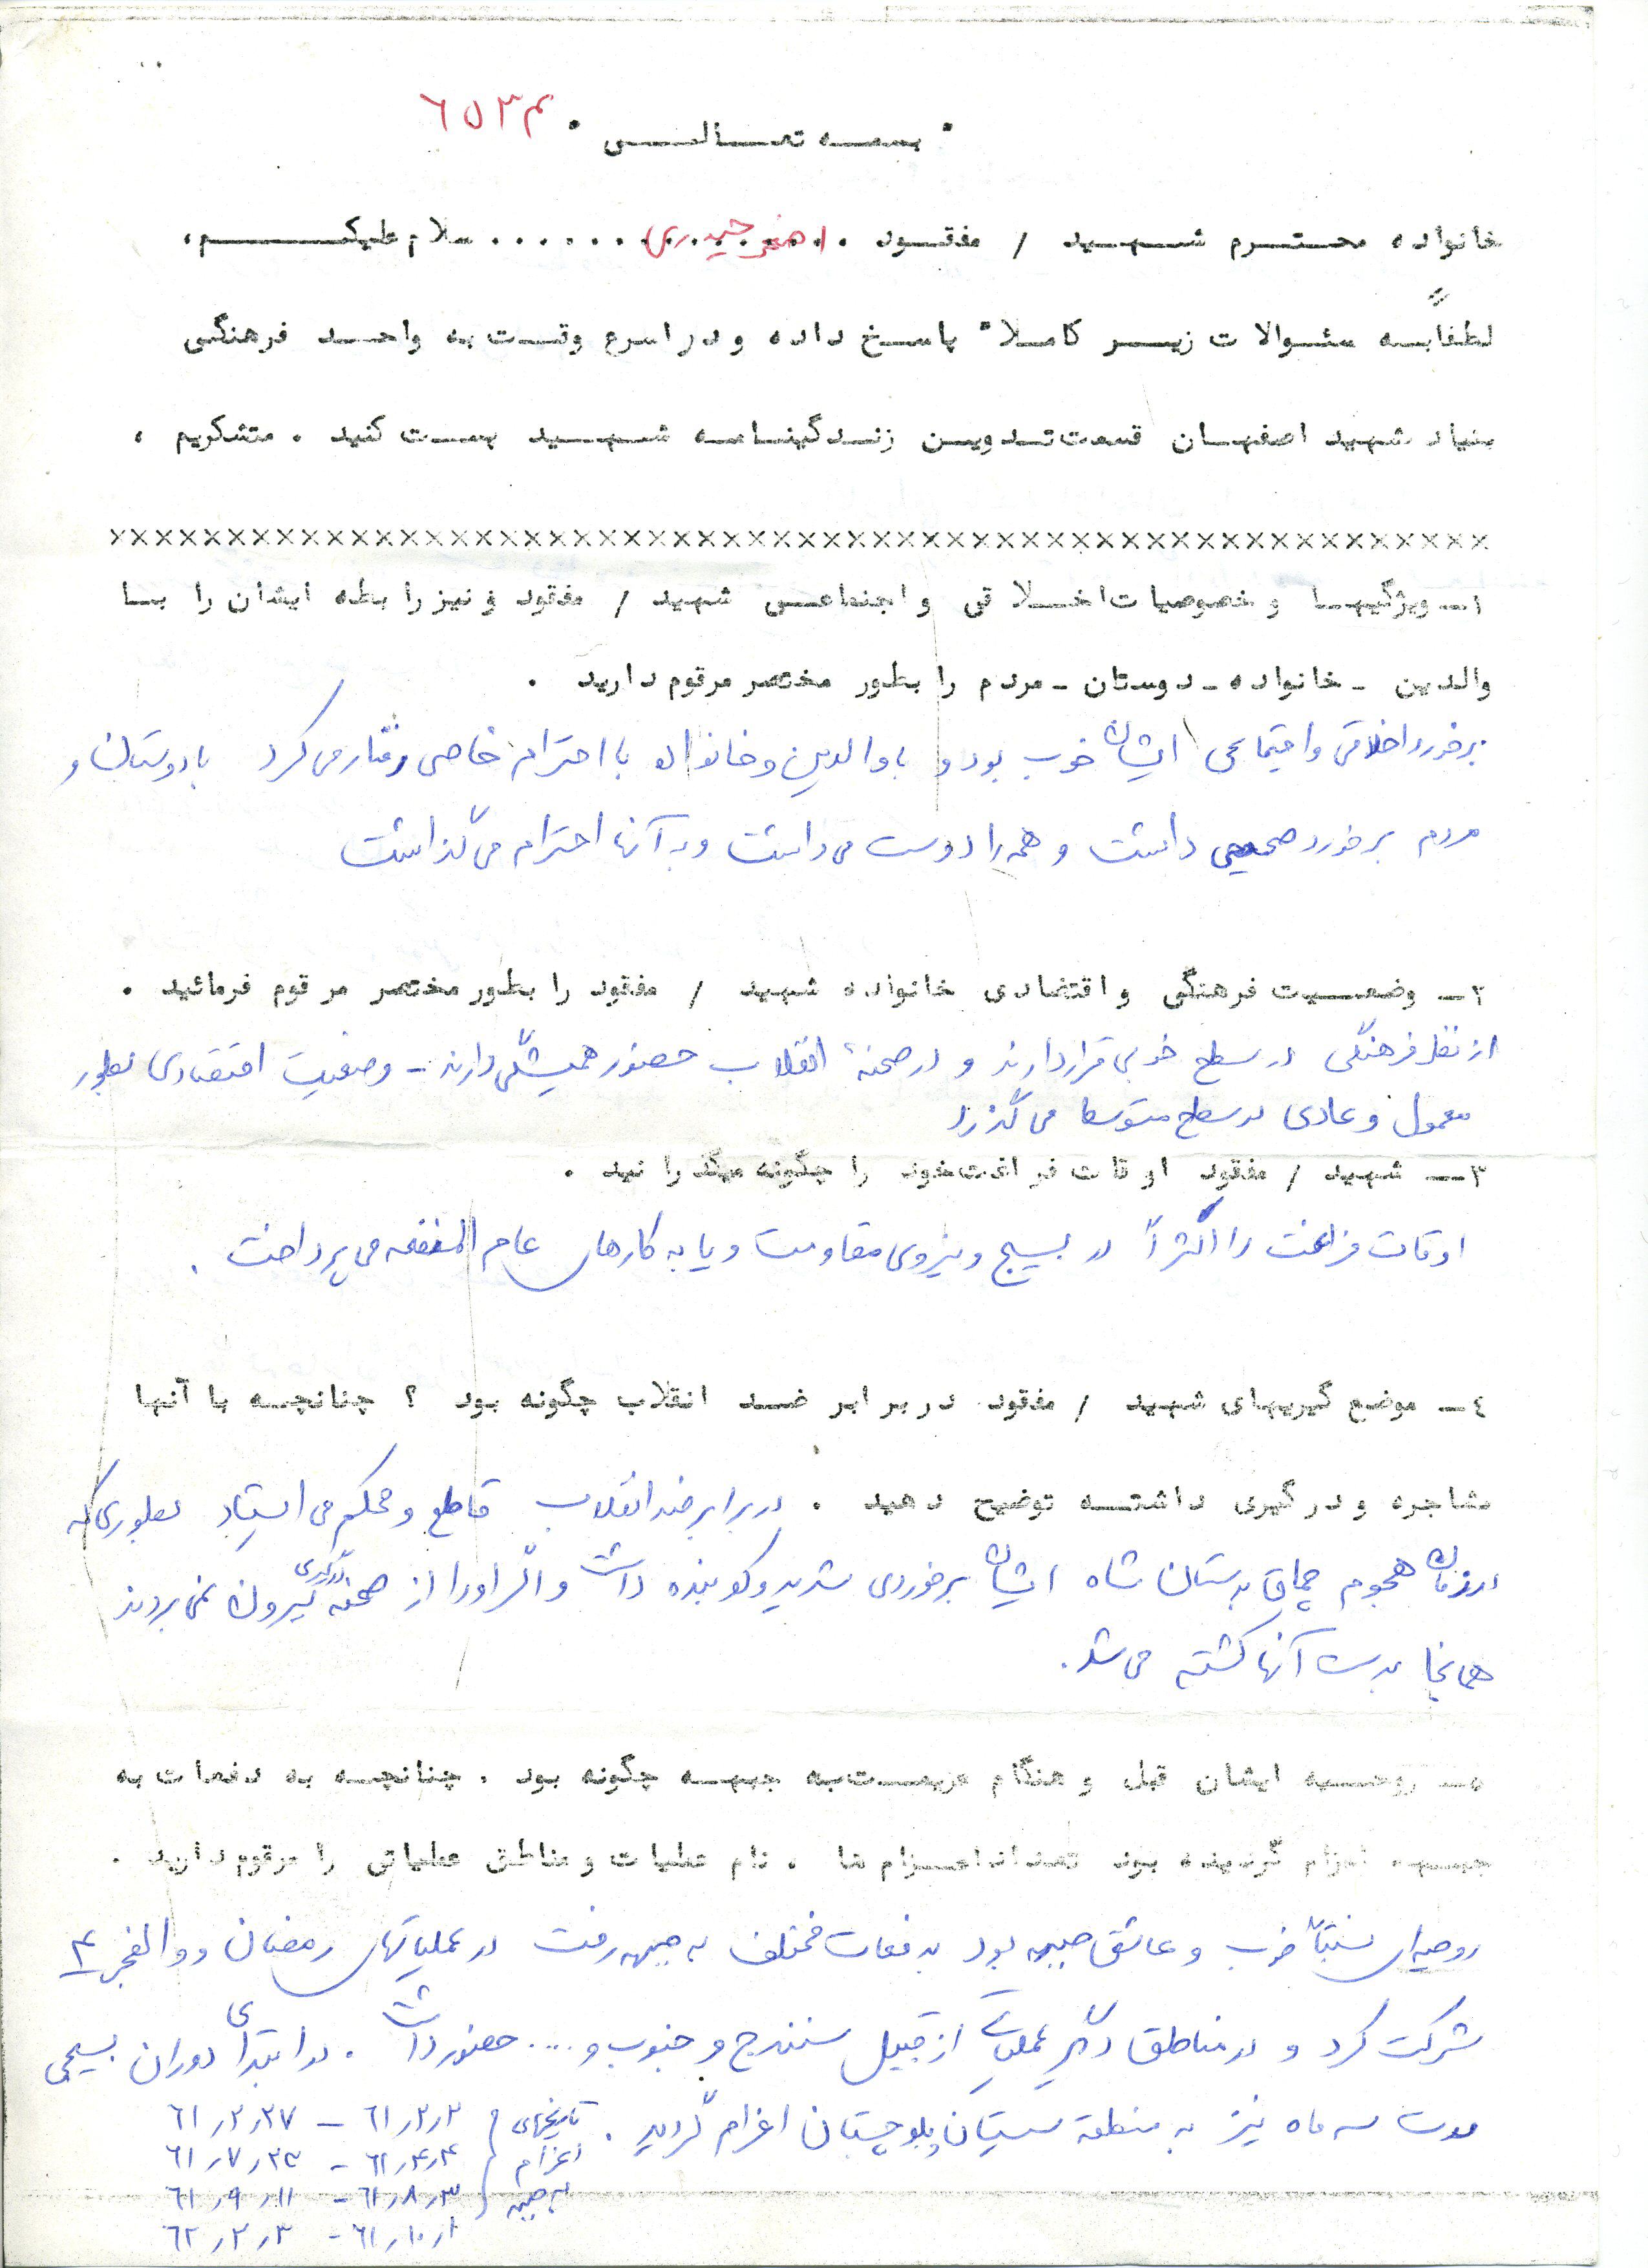 ٦٥٣٤
" بسمه تعالی "
خانواده محترم شهید / مفقود . اصغر حیدری . . . . . . سلام علیکم ،
لطفاً به سئوالات زیر کاملا" پاسخ داده و در اسرع وقت به واحد فرهنگی
بنیاد شهید اصفهان قسمت تدوین زندگینامه شهید پست کنید . متشکریم .
××××××××××××××××××××××××××××××××××××××××××××××××××××××××
۱- ویژگیها و خصوصیات اخلاقی و اجتماعی شهید / مفقود و نیز رابطه ایشان را با
والدین - خانواده - دوستان - مردم را بطور مختصر مرقوم دارید .
برخورد اخلاقی و اجتماعی ایشان خوب بود و با والدین و خانواده با احترام خاصی رفتار می کرد با دوستان و
مردم برخورد صحیحی داشت و همه را دوست می داشت و به آنها احترام می گذاشت
۲- وضعیت فرهنگی و اقتصادی خانواده شهید / مفقود را بطور مختصر مرقوم فرمائید .
از نظر فرهنگی در سطح خوبی قرار دارند و در صحنهٔ انقلاب حضور همیشگی دارند - وضعیت اقتصادی بطور
معمول و عادی در سطح متوسط می گذرد
۳- شهید / مفقود اوقات فراغت خود را چگونه میگذرانید .
اوقات فراغت را اکثراً در بسیج و نیروی مقاومت و یا به کارهای عام المنفعه می پرداخت .
٤- موضع گیریهای شهید / مفقود در برابر ضد انقلاب چگونه بود ؟ چنانچه با آنها
مشاجره و درگیری داشته توضیح دهید . در برابر ضد انقلاب قاطع و محکم می ایستاد بطوری که
در زمان هجوم چماق بدستان شاه ایشان برخوردی شدید و کوبنده داشت و اگر او را از صحنه درگیری بیرون نمی بردند
همانجا بدست آنها کشته می شد .
٥- روحیه ایشان قبل و هنگام عزیمت به جبهه چگونه بود . چنانچه به دفعات به
جبهه اعزام گردیده بود تعداد اعزام ها ، نام عملیات و مناطق عملیاتی را مرقوم دارید .
روحیه ای نسبتاً خوب و عاشق جبهه بود به دفعات مختلف به جبهه رفت در عملیاتهای رمضان و والفجر ۴
شرکت کرد و در مناطق دیگر عملیاتی از قبیل سنندج و جنوب و .... حضور داشت . در ابتدای دوران بسیجی
مدت سه ماه نیز به منطقه سیستان بلوچستان اعزام گردید .
تاریخهای اعزام به جبهه
٦١٫٢٫٢ - ٦١٫٢٫٢٧
٦١٫٤٫٤ - ٦١٫٧٫٢٣
٦١٫٨٫٣ - ٦١٫٩٫١١
٦١٫١٠٫١ - ٦٢٫٢٫٣